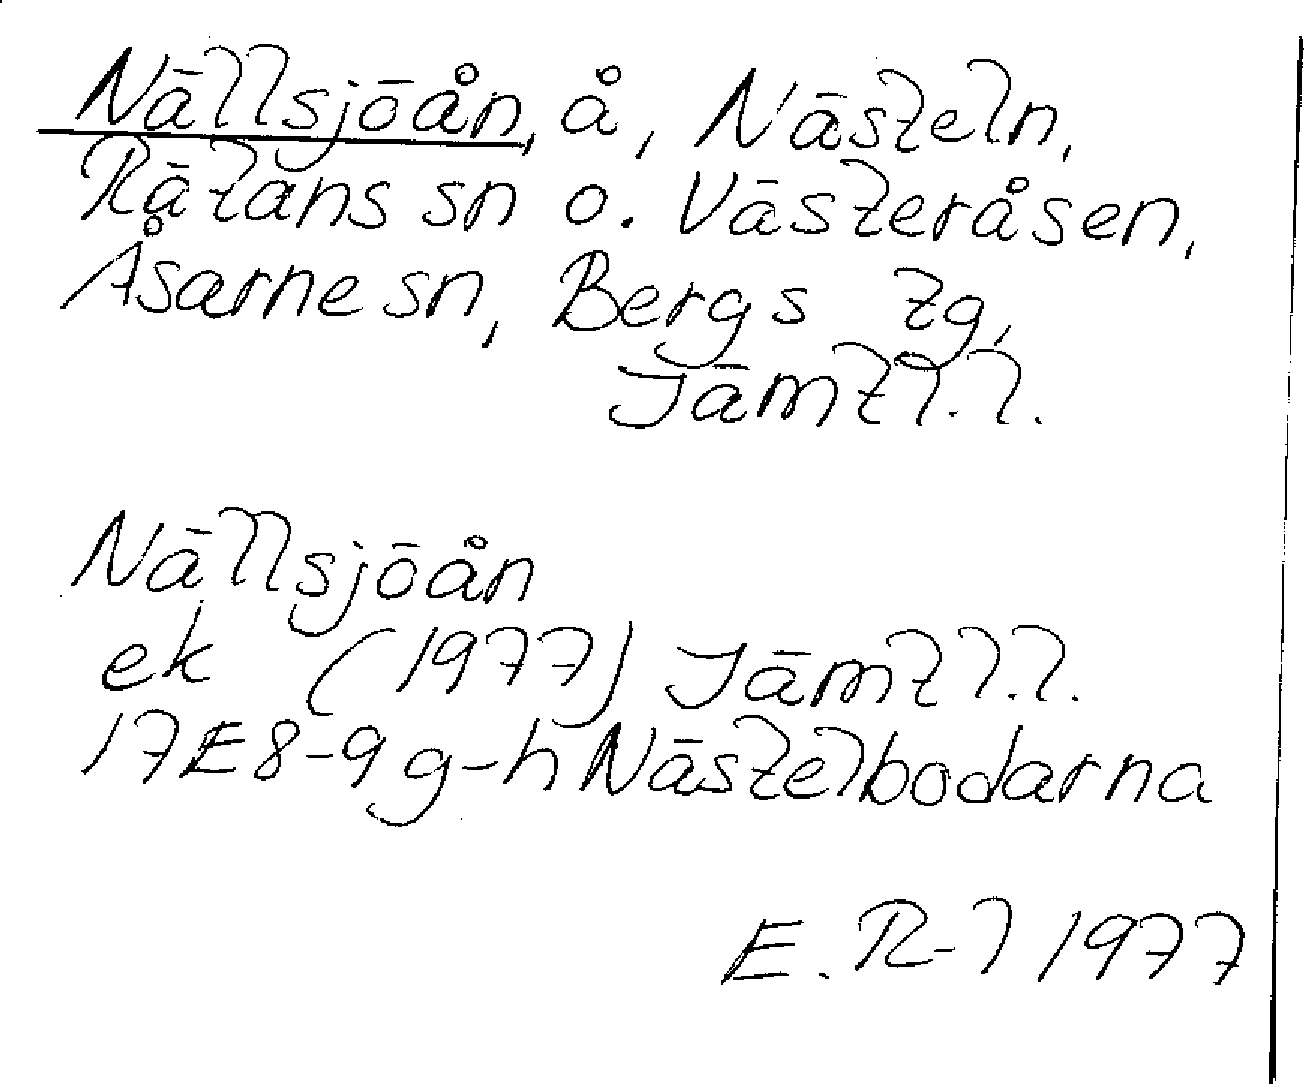 Nällsjöån, å, Nästeln,
Rätans sn o. Västeråsen,
Åsarne sn, Bergs tg,
Jämtl.l.
Nällsjöån
ek (1977) Jämtl.l.
17E8-9g-h Nästelbodarna
E. R-l 1977